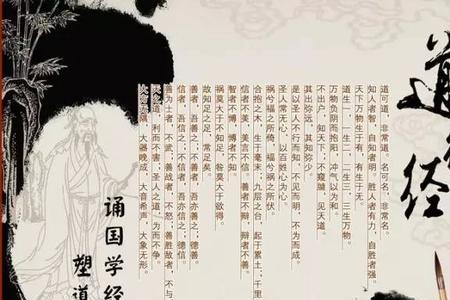 道
经
道可道，非常道。名可名，非常名。
知人者智，自知者明。胜人者有力，自胜者强。
天下万物生于有，有生于无。
道生一，一生二，二生三，三生万物。
万物负阴而抱阳，冲气以为和。
不出户，知天下；不窥牖，见天道。
其出弥远，其知弥少。
是以圣人不行而知，不见而明，不为而成。
圣人常无心，以百姓心为心。
祸兮福之所倚，福兮祸之所伏。
合抱之木，生于毫末；九层之台，起于累土；千里
信者不美，美言不信。善者不辩，辩者不善。
智者不博，博者不知。
祸莫大于不知足，咎莫大于欲得。
故知足之足，常足矣。
善者，吾善之；不善者，吾亦善之；德善。
信者，吾信之；不信者，吾亦信之；德信。
善为士者，不武；善战者，不怒；善胜敌者，不与
天之道，利而不害；圣人之道，为而不争。
大方无隅，大器晚成，大音希声，大象无形。
诵国学经
塑道